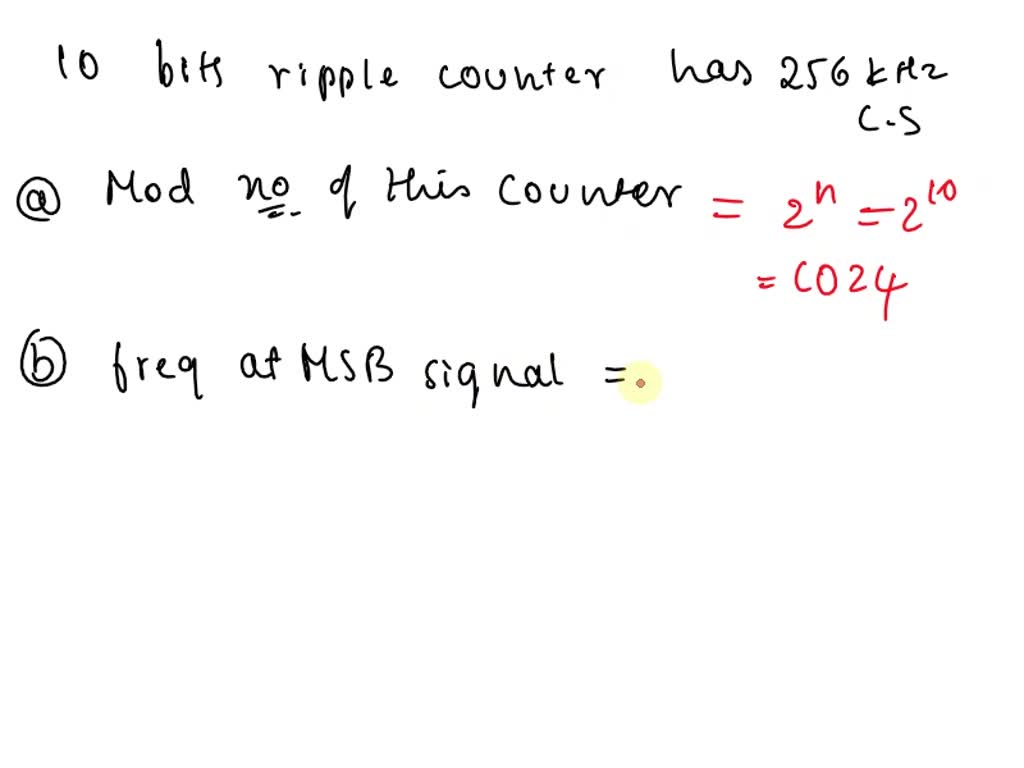 10 bits ripple counter has 256 kHz
C.S
ⓐ Mod no of this counter = 2^n = 2^10
= 1024
ⓑ freq at MSB signal =